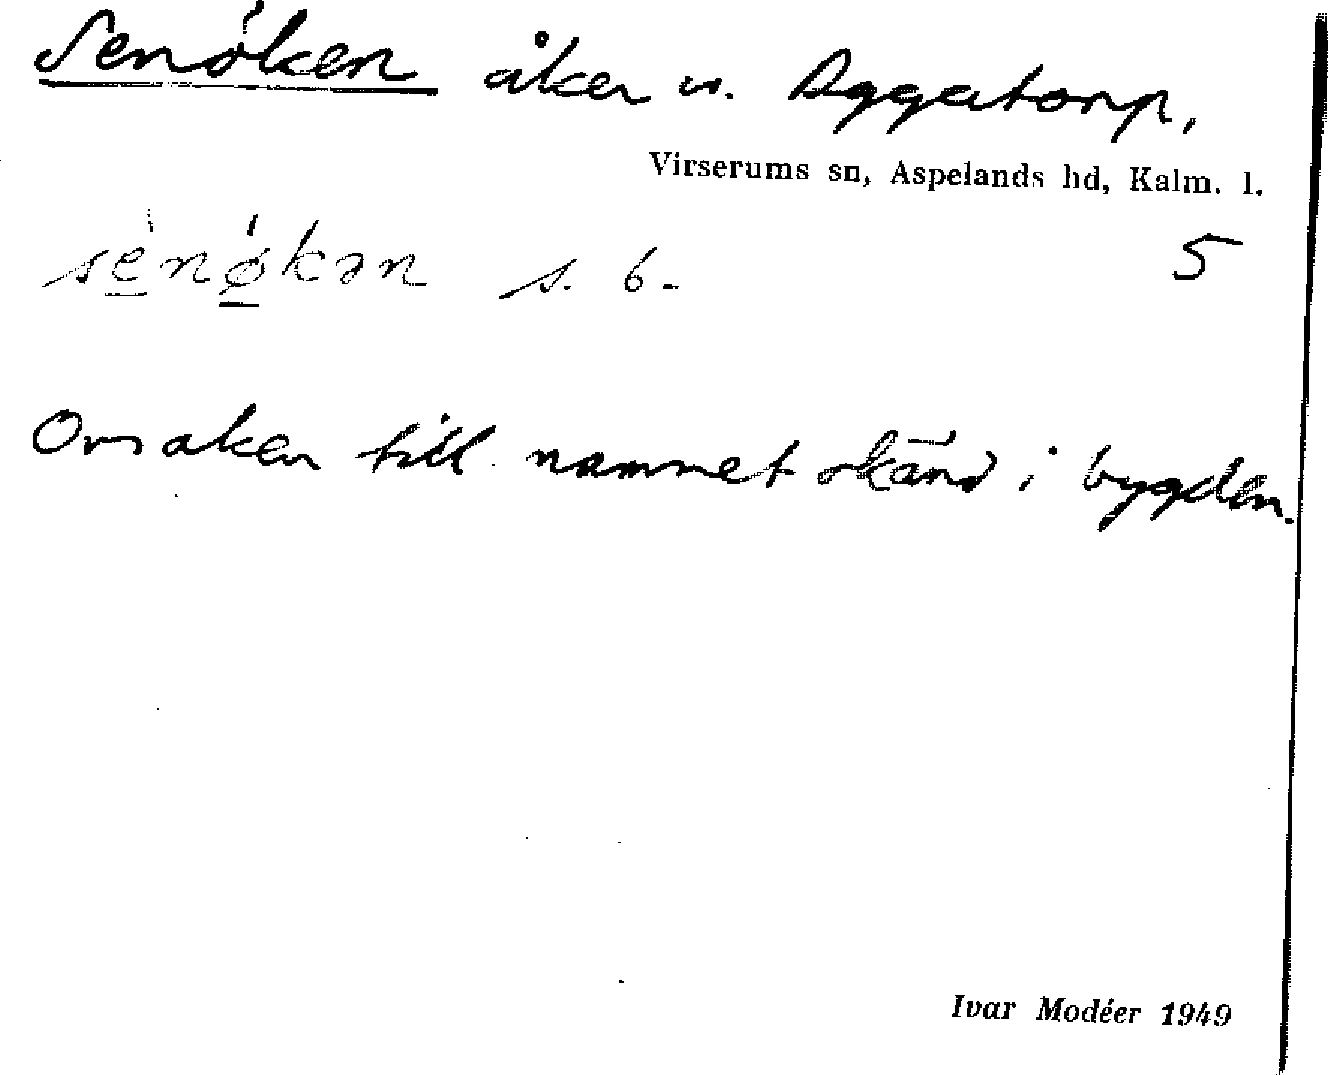 Senöken åker v. Aggatorp,
Virserums sn, Aspelands hd, Kalm. l.
sènǿkən s. b. 5
Orsaken till namnet okänd i bygden.
Ivar Modéer 1949